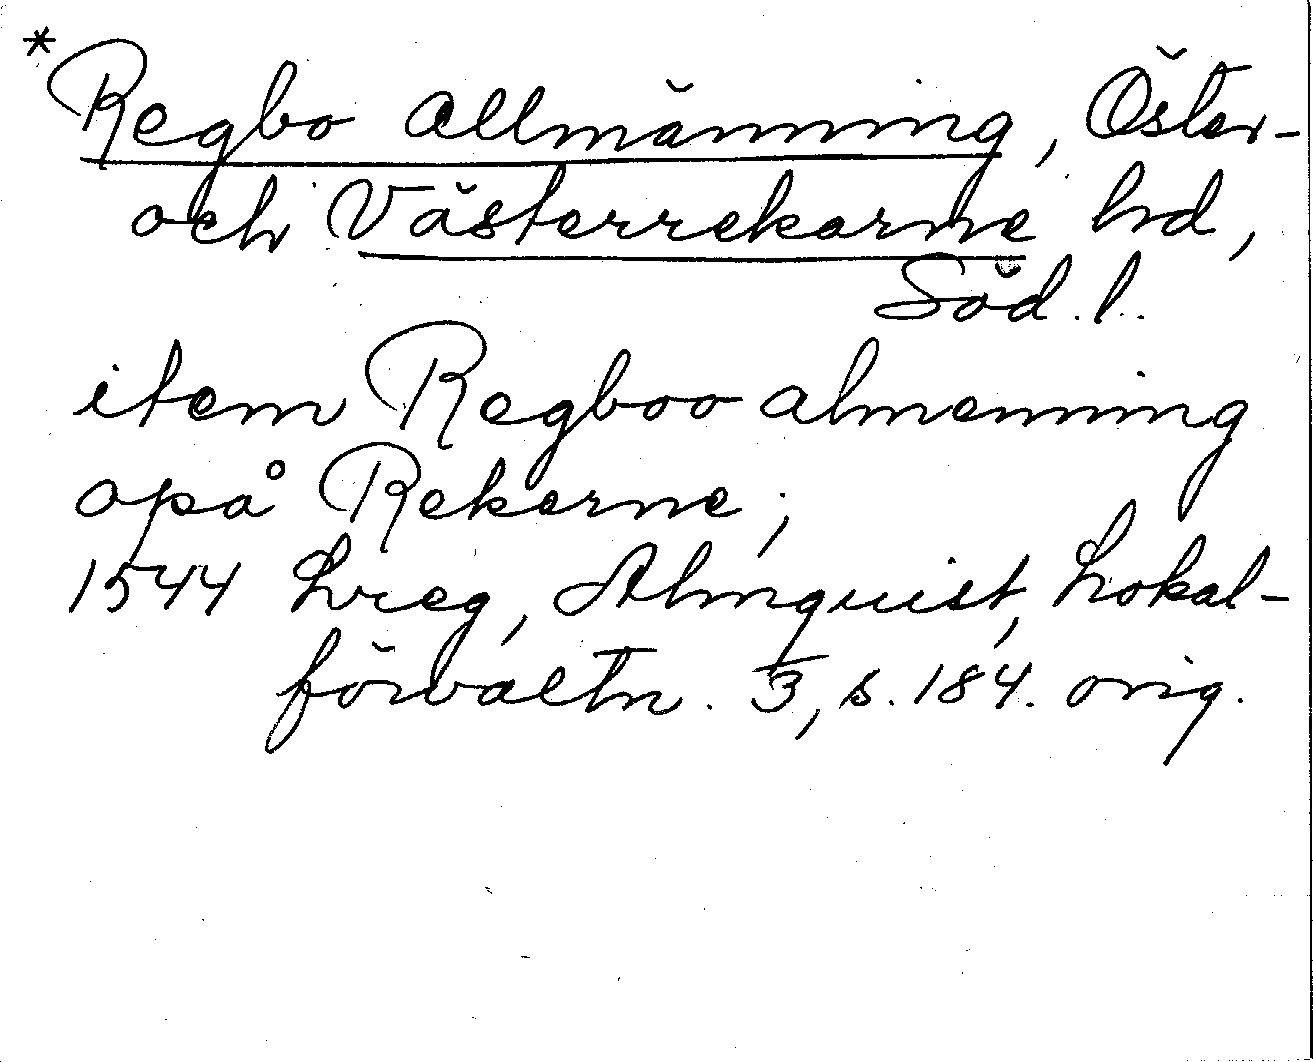 *Regbo allmänning, Öster-
och Västerrekarne hd,
Söd. l.
item Regboo almenning
opå Rekerne;
1544 Lvreg, Almquist, Lokal-
förvaltn. 3, s. 184. orig.